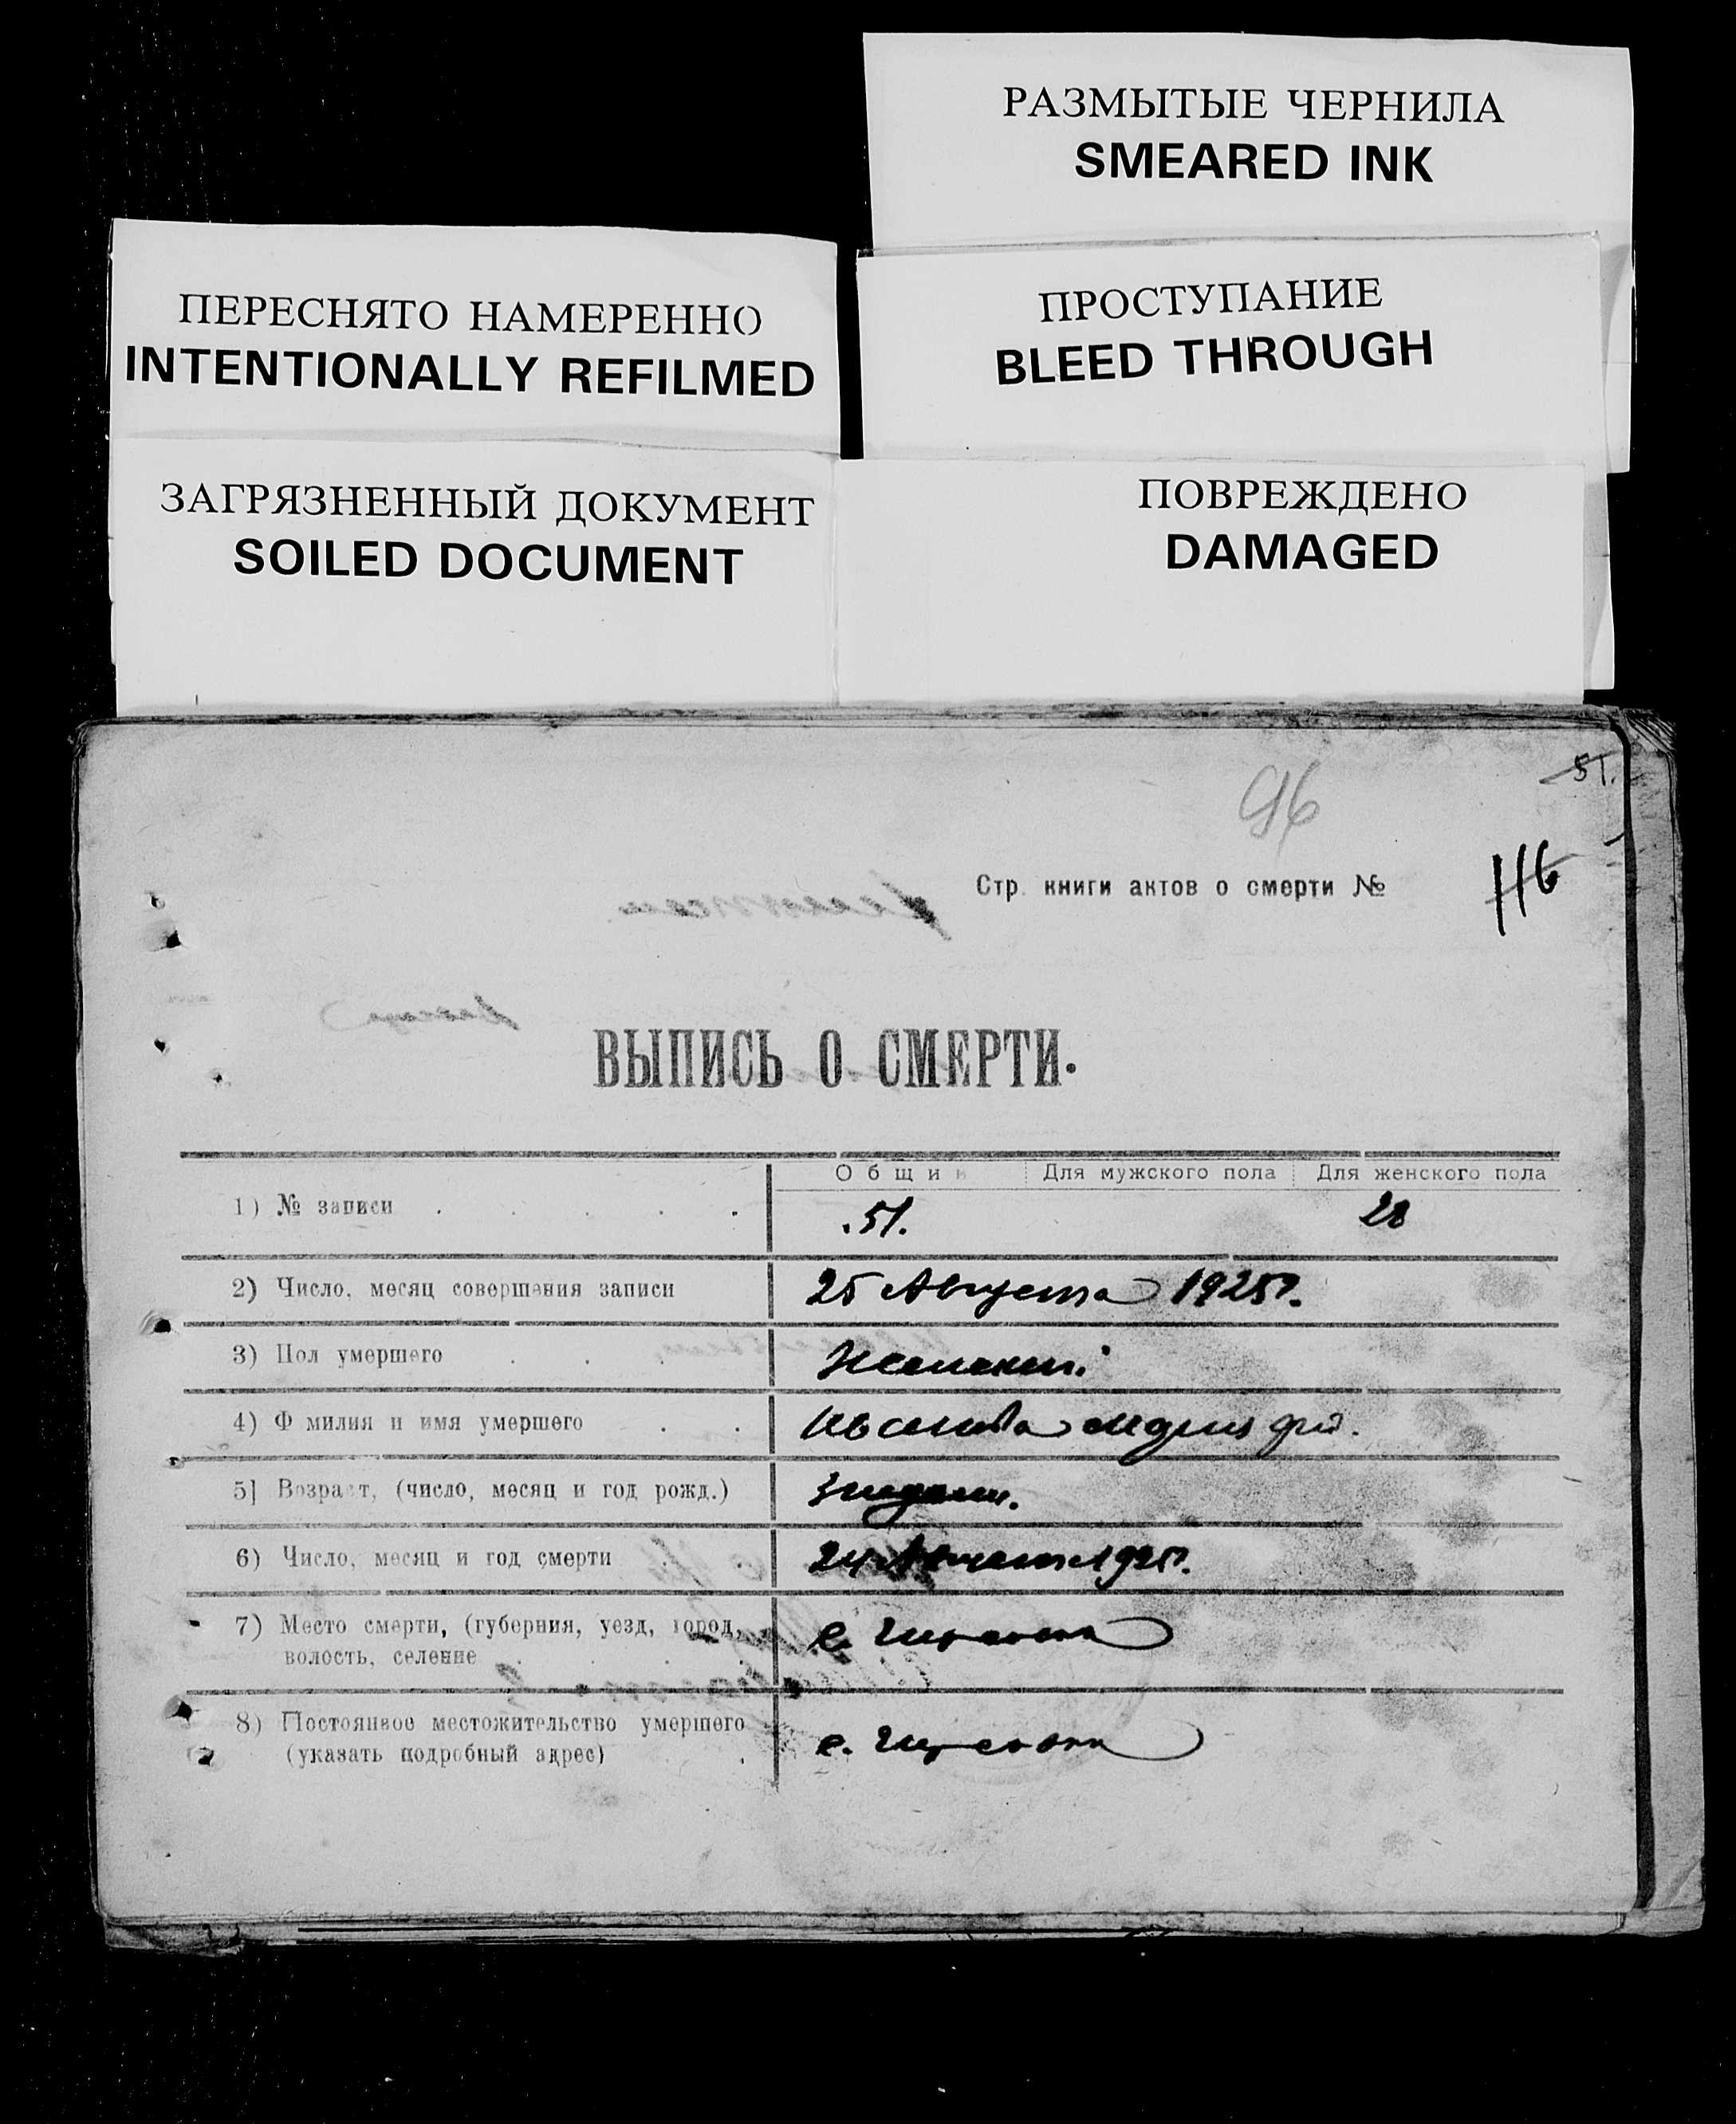 РАЗМЫТЫЕ ЧЕРНИЛА
SMEARED INK
ПЕРЕСНЯТО НАМЕРЕННО
INTENTIONALLY REFILMED
ПРОСТУПАНИЕ
BLEED THROUGH
ЗАГРЯЗНЕННЫЙ ДОКУМЕНТ
SOILED DOCUMENT
ПОВРЕЖДЕНО
DAMAGED
51.
96
Стр. книги актов о смерти № 116
ВЫПИСЬ О СМЕРТИ.
Общий Для мужского пола Для женского пола
1) № записи 51. 28
2) Число, месяц совершения записи 25 Августа 1925г.
3) Пол умершего Женский
4) Фамилия и имя умершего
5) Возраст, (число, месяц и год рожд.) 3 недели.
6) Число, месяц и год смерти 24 Августа 1925г.
7) Место смерти, (губерния, уезд, город,
волость, селение с.
8) Постоянное местожительство умершего
(указать подробный адрес) с.